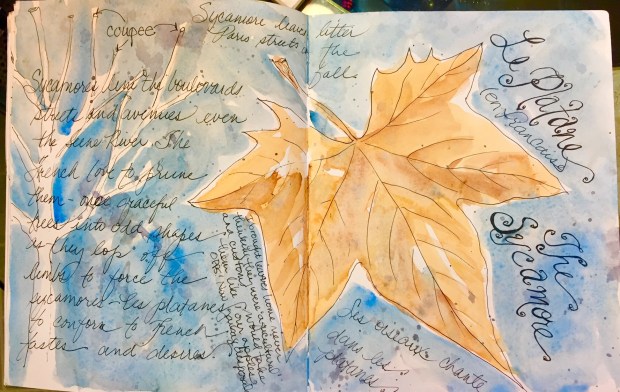 coupée
Sycamore leaves litter
Paris streets in the
fall.
Sycamores line the boulevards
streets and avenues even
the Seine River. The
French love to prune
them - once graceful
trees into odd shapes
as they lop off
limbs to force the
sycamores - les platanes
to conform to French
tastes and desires.
I brought leaves home never
thinking they were agricultural
Le Platane
(en francais)
The
Sycamore
Ses oiseaux chante
dans les
platanes